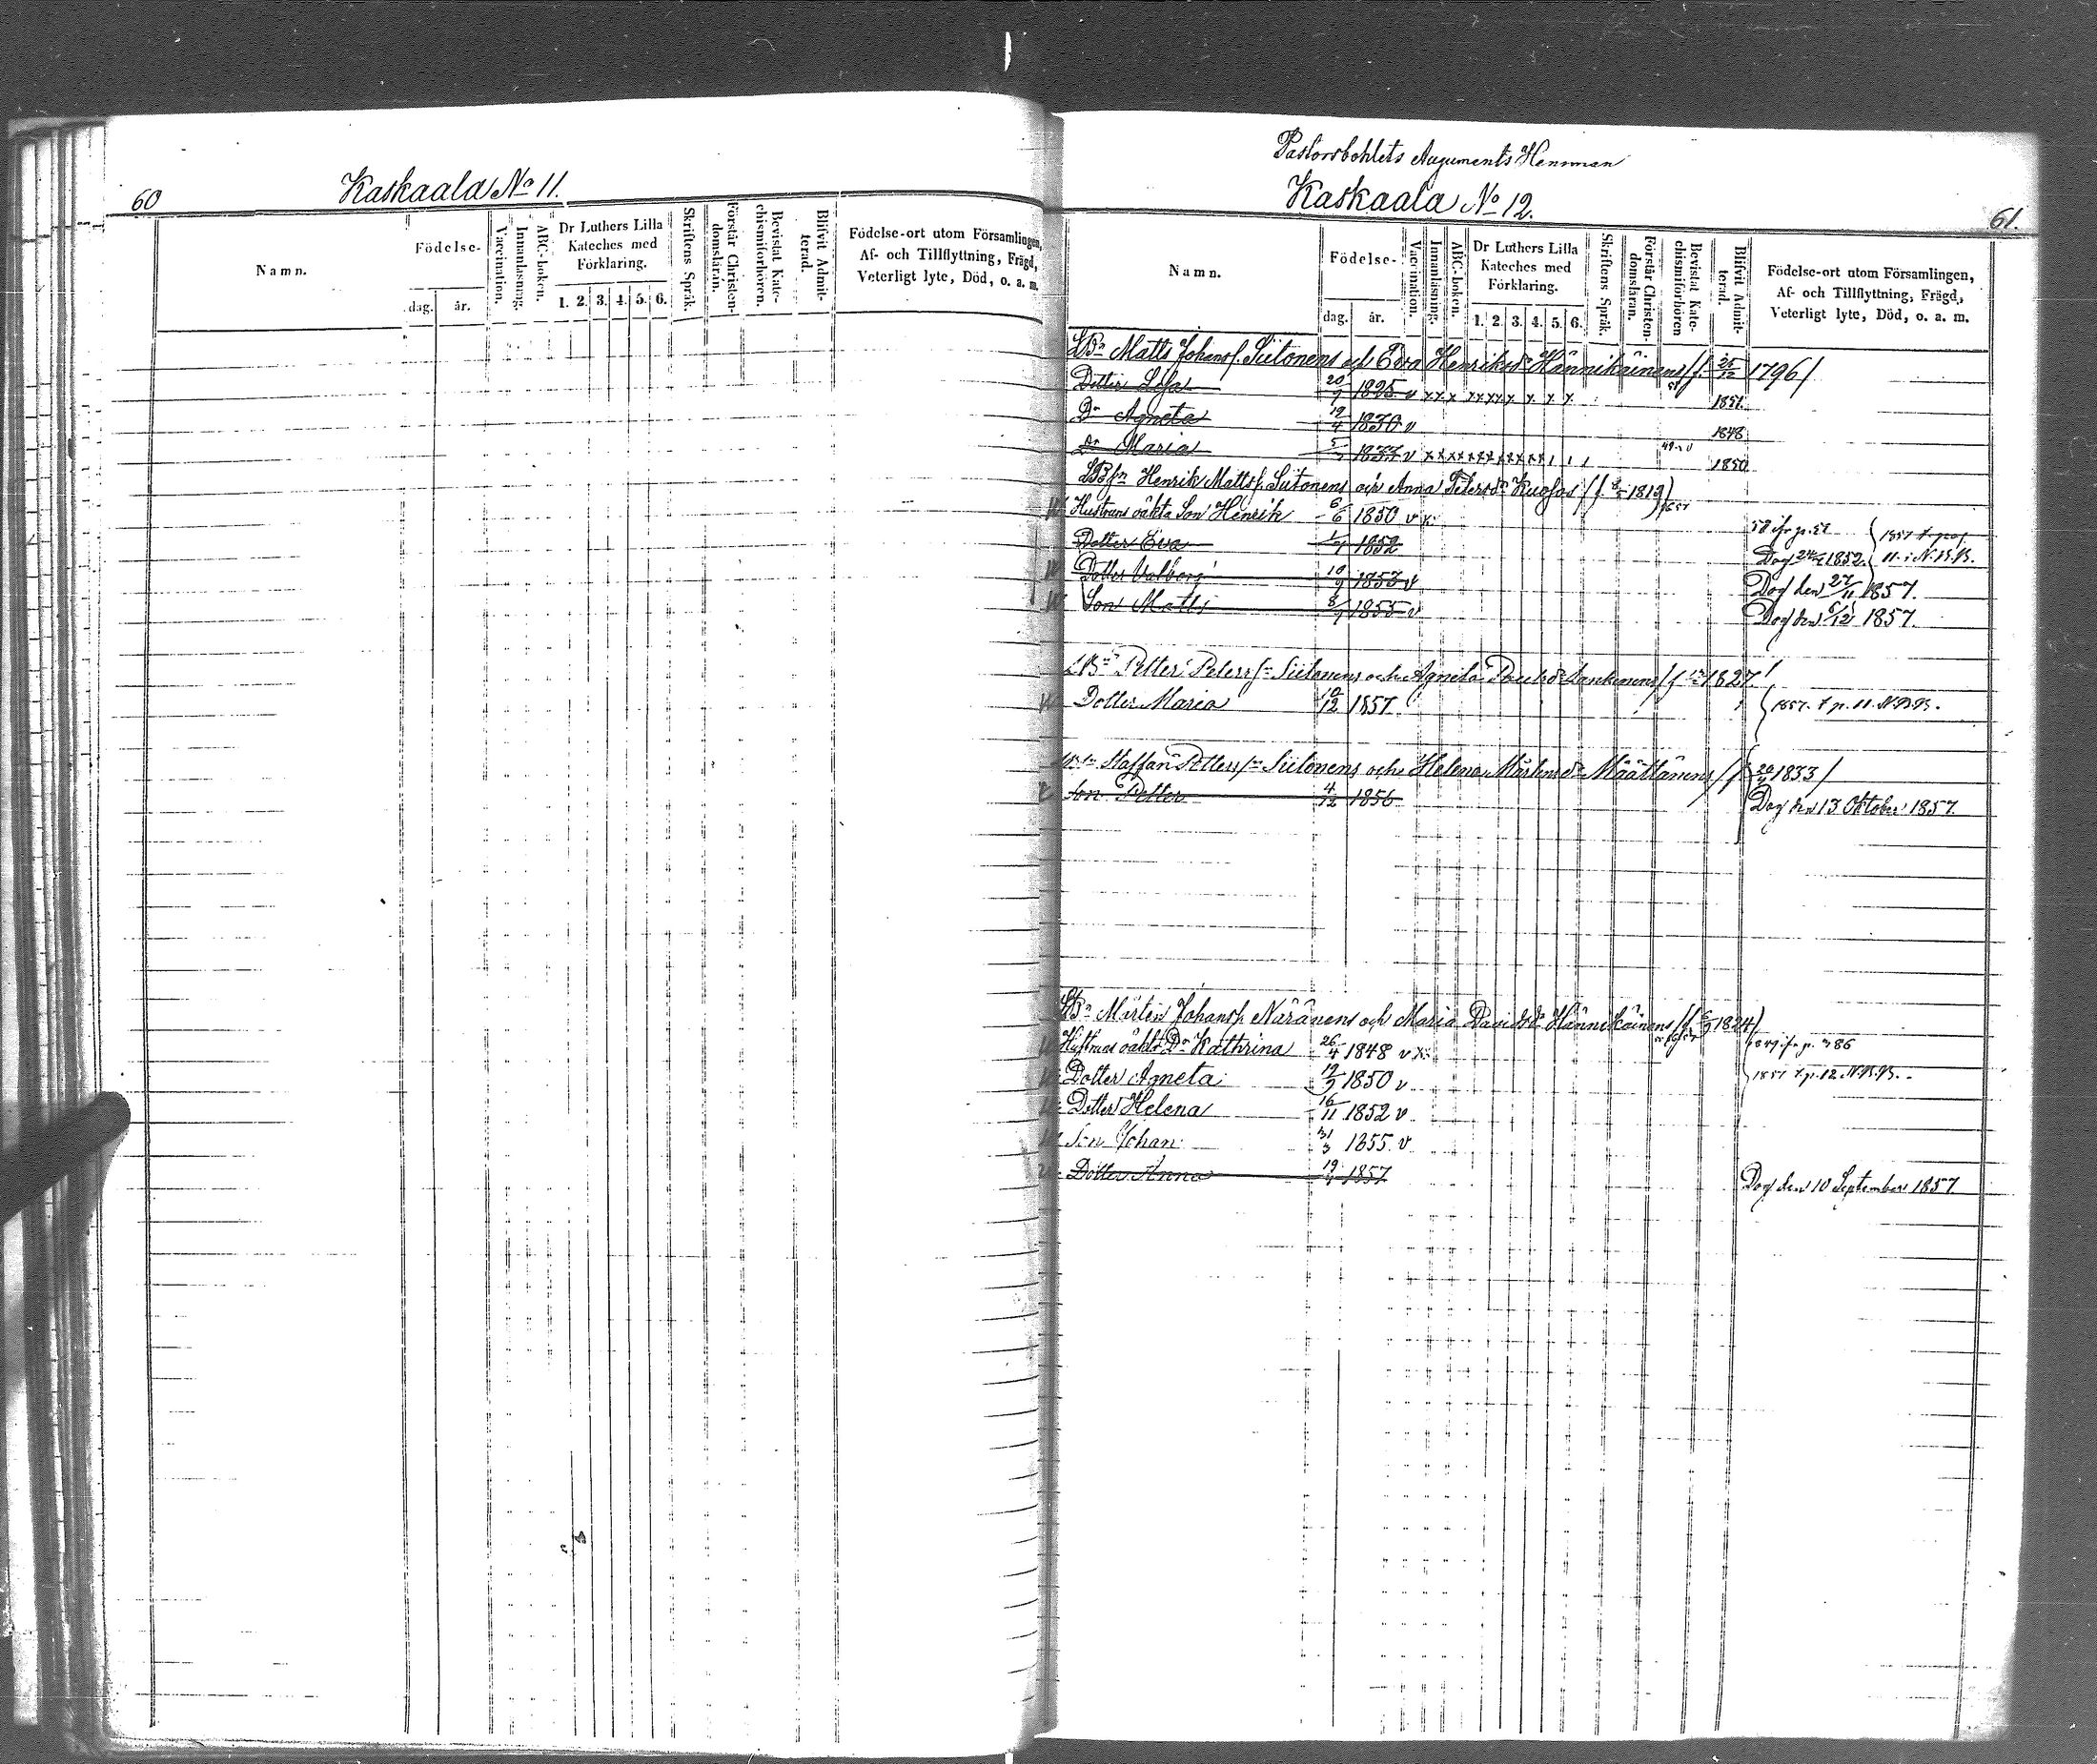 60
Kaskaala No 11.
Namn.
Födelse-
dag. år.
Vaccination.
Innanläsning.
ABC-boken.
Dr Luthers Lilla Kateches med Förklaring.
1. 2. 3. 4. 5. 6.
Skriftens Språk.
Förstår Christendomsläran.
Bevistat Katechismiförhören.
Blifvit Admitterad.
Födelse-ort utom Församlingen,
Af- och Tillflyttning, Frägd,
Veterligt lyte, Död, o. a. m.
Pastorsbohlets Auguments Hemman
Kaskaala No 12.
61.
Namn.
Födelse-
dag. år.
Vaccination.
Innanläsning.
ABC-boken.
Dr Luthers Lilla Kateches med Förklaring.
1. 2. 3. 4. 5. 6.
Skriftens Språk.
Förstår Christendomsläran.
Bevistat Katechismiförhören
Blifvit Admitterad.
Födelse-ort utom Församlingen,
Af- och Tillflyttning, Frägd,
Veterligt lyte, Död, o. a. m.
Matts Johans. Siitonens och Eva Henriksdr Hännikäinens /f. 25/12 1796/
Dotter 20/9 1825 v x x x x x x x x x x 1851.
Dr Agneta 19/4 1830 v 1848
Dr Maria v x x x x x x x x x x 1850
Henrik Matts. Siitonens och Anna Petersdr Kuosas 1819/
Hustruns oäkta Son Henrik 6/6 1850 v x
Dotter Eva 1852 Dog 1852. 11 i N.B.B.
Dotter Valborg 10/9 1853 v Dog den 27/11 1857.
Son Matts 8/9 1855 v Dog den 6/12 1857.
Petter Petersson Siitonens och Agneta 1827/
Dotter Maria 10/12 1857. 1857. t p. 11 N.B.B.
Staffan Petterss Siitonens och Helena Mårtensdr Määttänens /f 20/ 1833/
Son Petter 4/12 1856 Dog den 13 Oktober 1857.
Mårten Johanss. Näränens och Maria Davidsdr Hännikäinens 1824/
Hustruns oäkta Dr Kathrina 26/4 1848 v x
Dotter Agneta 1850 v 1857 t p. 12. N.B.B.
Dotter Helena 16/11 1852 v
Son Johan 31/3 1855. v
Dotter Anna 1857 Dog den 10 September 1857